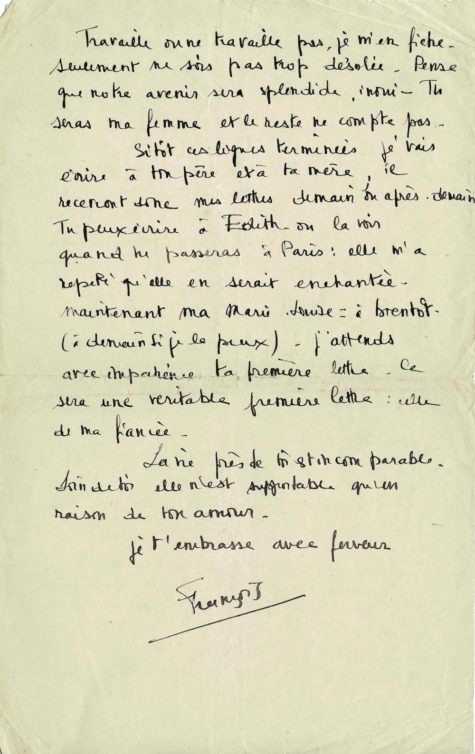 Travaille ou ne travaille pas, je m'en fiche.
Seulement ne sois pas trop désolée. Pense
que notre avenir sera splendide, inouï - Tu
seras ma femme et le reste ne compte pas.
Sitôt ces lignes terminées je vais
écrire à ton père et à ta mère, ils
recevront donc mes lettres demain ou après-demain
Tu peux écrire à Edith - ou la voir
quand tu passeras à Paris : elle m'a
répété qu'elle en serait enchantée.
maintenant ma Marie-Louise = à bientôt.
(à demain si je le peux) - j'attends
avec impatience ta première lettre - Ce
sera une véritable première lettre : celle
de ma fiancée -
La vie près de toi est incomparable.
Loin de toi elle n'est supportable qu'en
raison de ton amour -
je t'embrasse avec ferveur
François